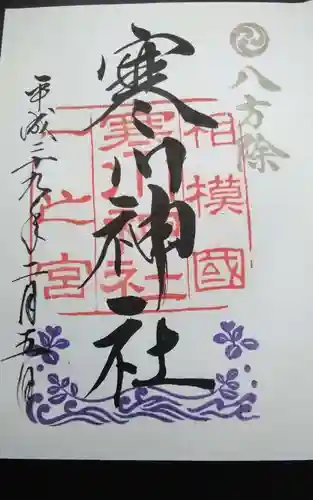 八方除
相模國
寒川神社
一之宮
寒川神社
平成二九年二月五日